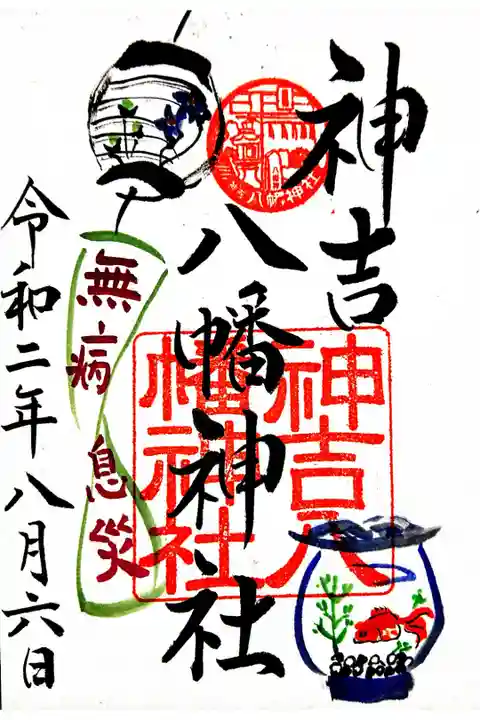 神吉
八幡神社
八幡神社
神吉八
幡神社
無病
息災
令和二年八月六日